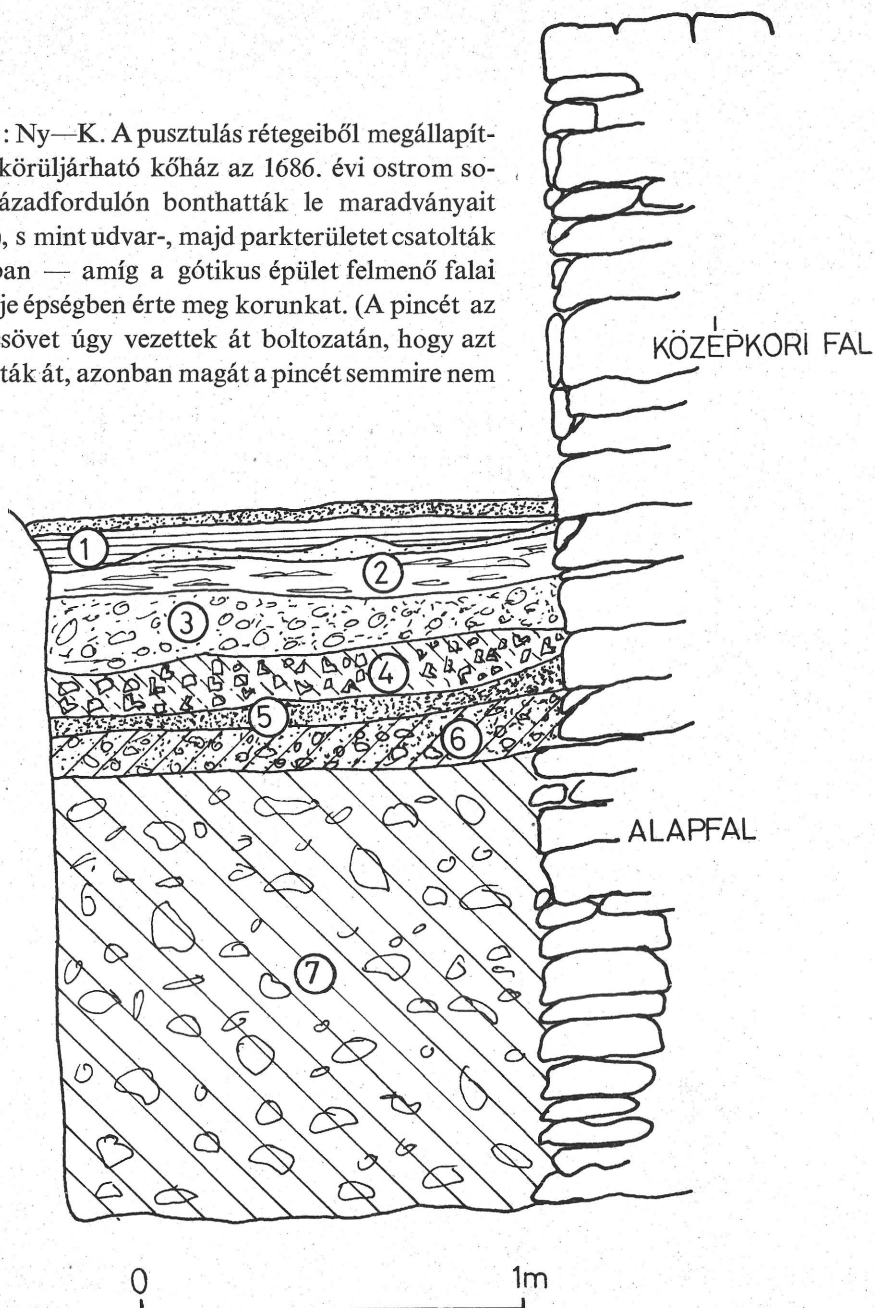 : Ny—K. A pusztulás rétegeiből megállapít-
körüljárható kőház az 1686. évi ostrom so-
ázadfordulón bonthatták le maradványait
), s mint udvar-, majd parkterületet csatolták
ban — amíg a gótikus épület felmenő falai
je épségben érte meg korunkat. (A pincét az
sövet úgy vezettek át boltozatán, hogy azt
ták át, azonban magát a pincét semmire nem
KÖZÉPKORI FAL
1
2
3
4
5
6
ALAPFAL
7
0 1m